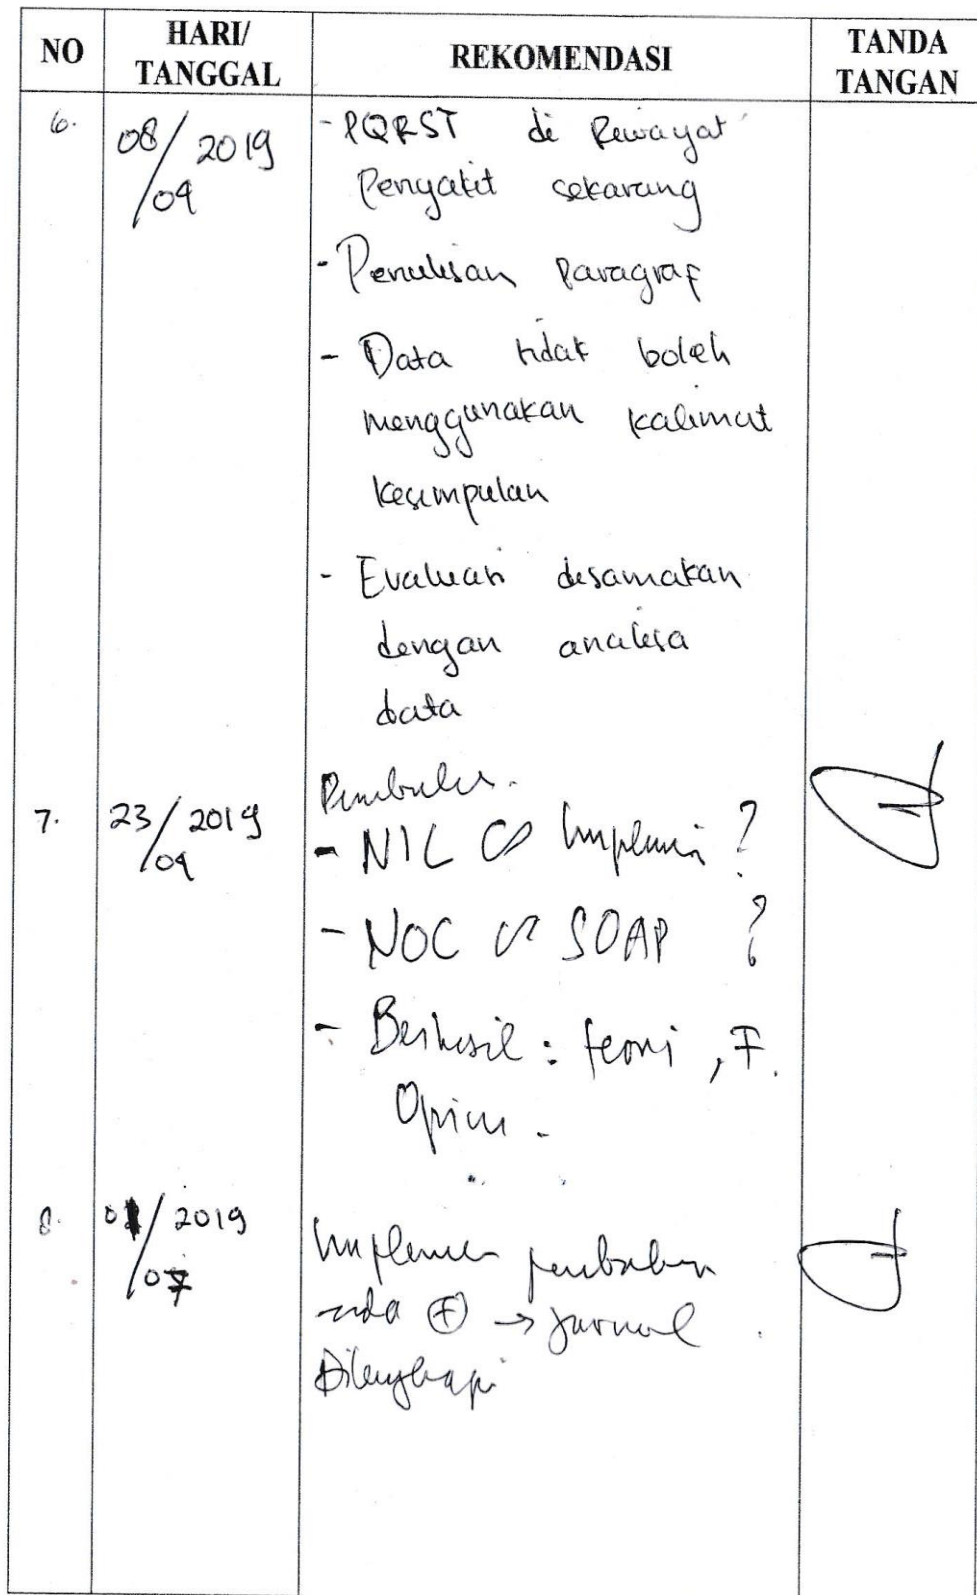 NO HARI/ TANGGAL REKOMENDASI TANDA TANGAN
6. 08/09 2019 - PQRST di Rewayat
Penyakit sekarang
- Penulisan Paragraf
- Data tidak boleh
menggunakan kalimat
kesimpulan
- Evaluasi disamakan
dengan analisa
data
7. 23/09 2019
- NIC ∽ Implemen ?
- NOC ∽ SOAP ?
- Berhasil : teori , F.
Opini .
8. 2019
Implemen
→ Jurnal
Dilengkapi